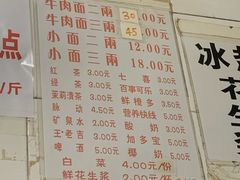 牛肉面二兩 30.00元
牛肉面三兩 45.00元
小面二兩 12.00元
小面三兩 18.00元
红茶 3.00元 七喜 3.00元
绿茶 3.00元 百事可乐 3.00元
茉莉清茶 3.00元 鲜橙多 3.50元
脉动 4.50元 营养快线 5.00元
矿泉水 2.00元 酸奶 3.00元
王老吉 3.00元 加多宝 5.00元
啤酒 5.00元 椰奶 5.00元
白菜 4.00元/份
鲜花生浆 2.00元
点
/斤
冰
花